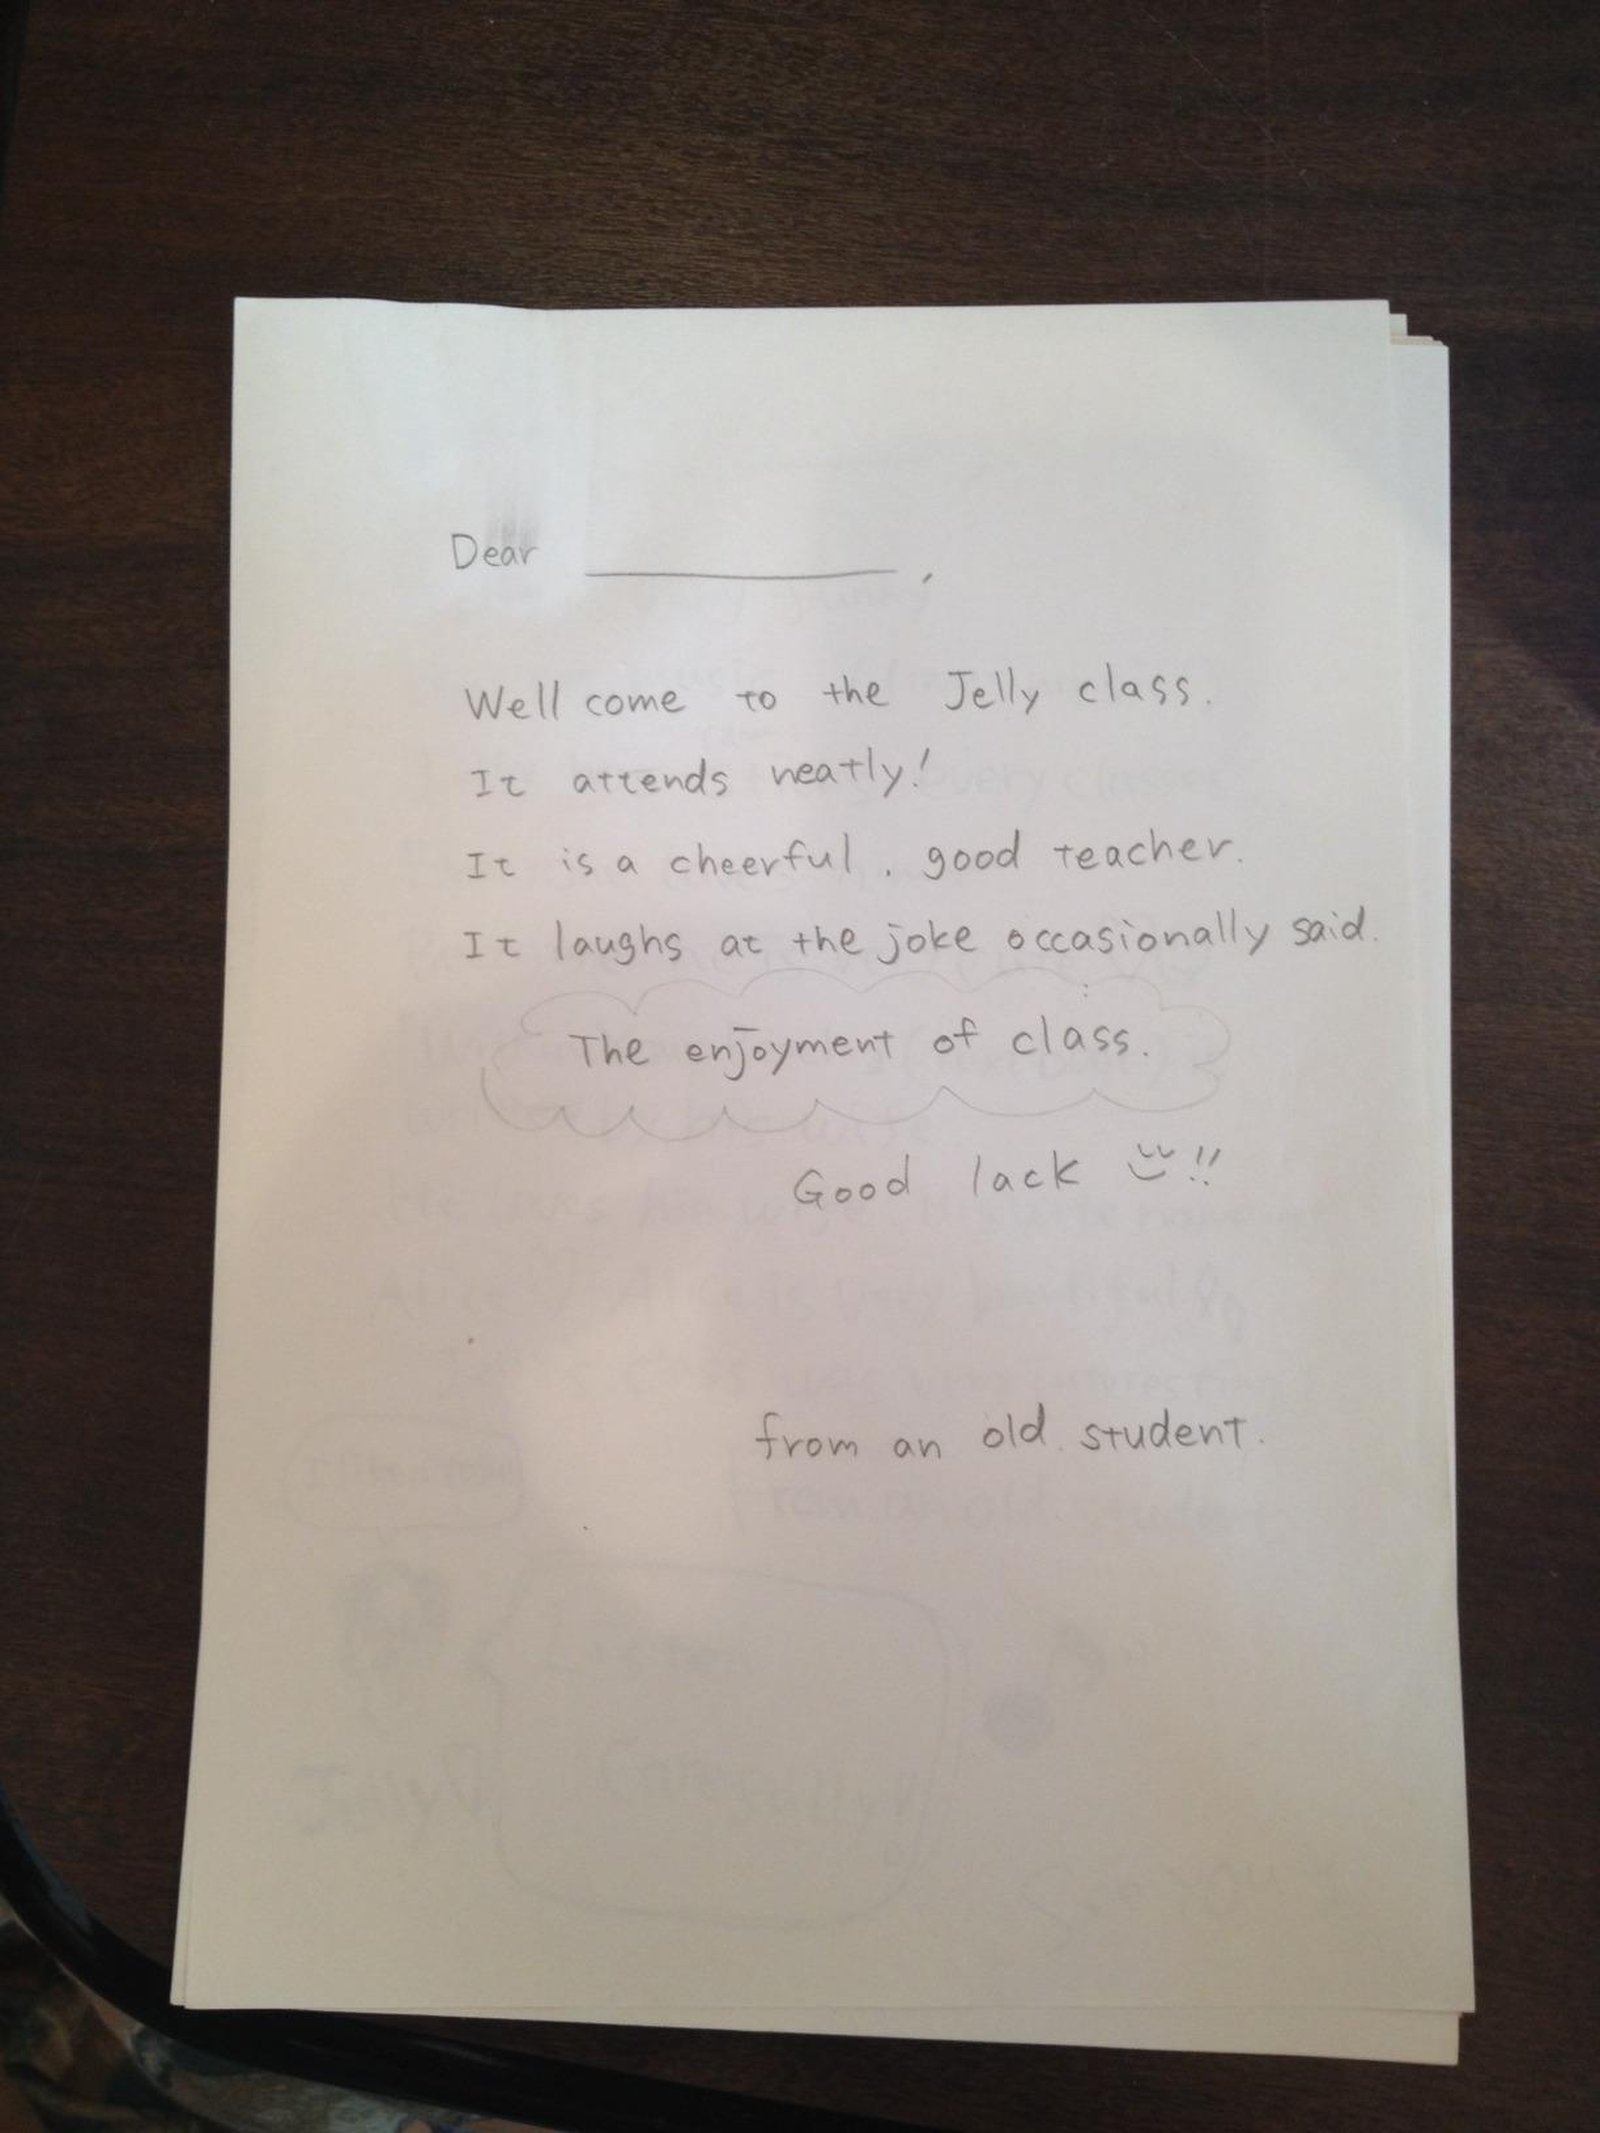 Dear ____________,
Well come to the Jelly class.
It attends neatly!
It is a cheerful, good teacher.
It laughs at the joke occasionally said.
The enjoyment of class.
Good lack !!
from an old student.